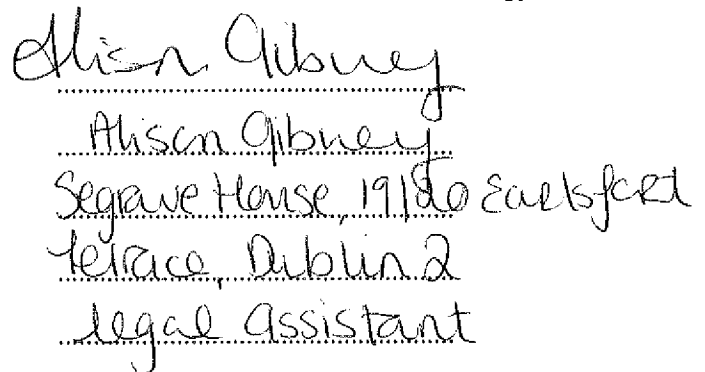 Alison Gibney
Alison Gibney
Segrave House, 19/20 Earlsfort
Terrace, Dublin 2
legal assistant